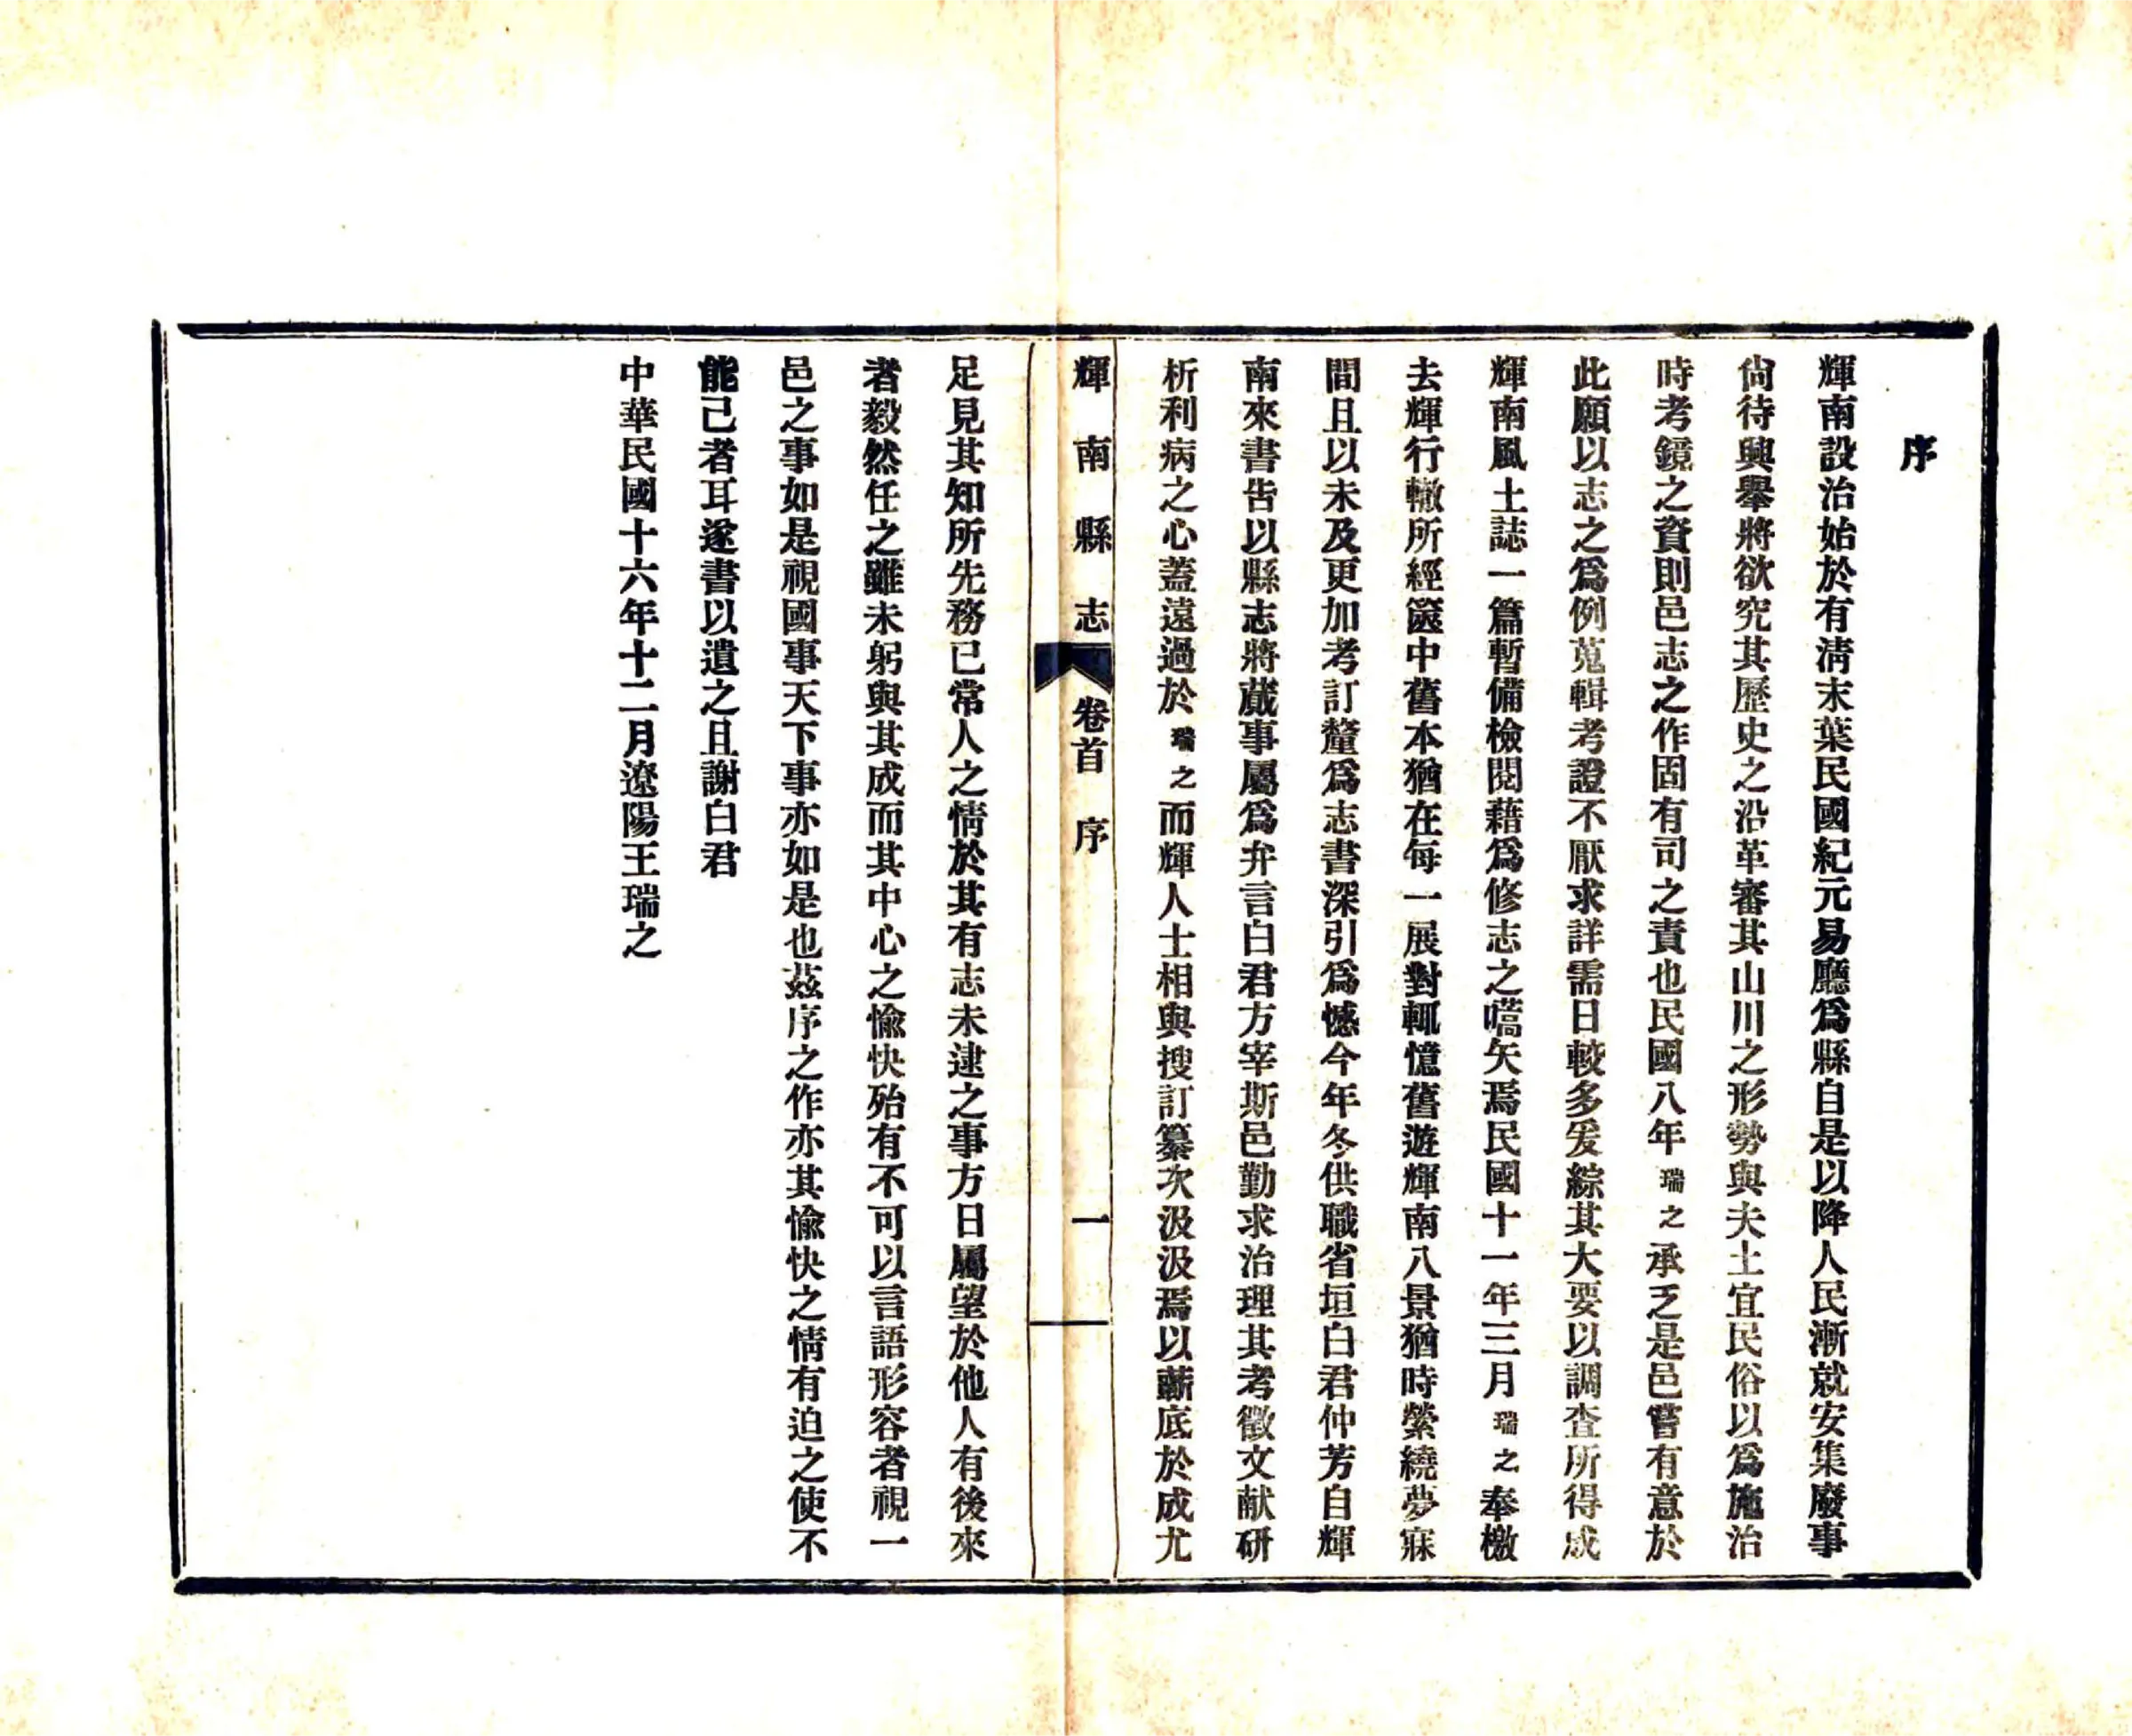 序
輝南設治始於有淸末葉民國紀元易廳爲縣自是以降人民漸就安集廢事
尙待興舉將欲究其歷史之沿革審其山川之形勢與夫土宜民俗以爲施治
時考鏡之資則邑志之作固有司之責也民國八年瑞之承乏是邑嘗有意於
此願以志之爲例蒐輯考證不厭求詳需日較多爰綜其大要以調查所得成
輝南風土誌一篇暫備檢閱藉爲修志之嚆矢焉民國十一年三月瑞之奉檄
去輝行轍所經篋中舊本猶在每一展對輒憶舊遊輝南八景猶時縈繞夢寐
間且以未及更加考訂釐爲志書深引爲憾今年冬供職省垣白君仲芳自輝
南來書告以縣志將蕆事屬爲弁言白君方宰斯邑勤求治理其考徵文献研
析利病之心蓋遠過於瑞之而輝人士相與搜訂纂次汲汲焉以蘄底於成尤
輝南縣志 卷首 序 一
足見其知所先務已常人之情於其有志未逮之事方日屬望於他人有後來
者毅然任之雖未躬與其成而其中心之愉快殆有不可以言語形容者視一
邑之事如是視國事天下事亦如是也茲序之作亦其愉快之情有迫之使不
能己者耳遂書以遺之且謝白君
中華民國十六年十二月遼陽王瑞之